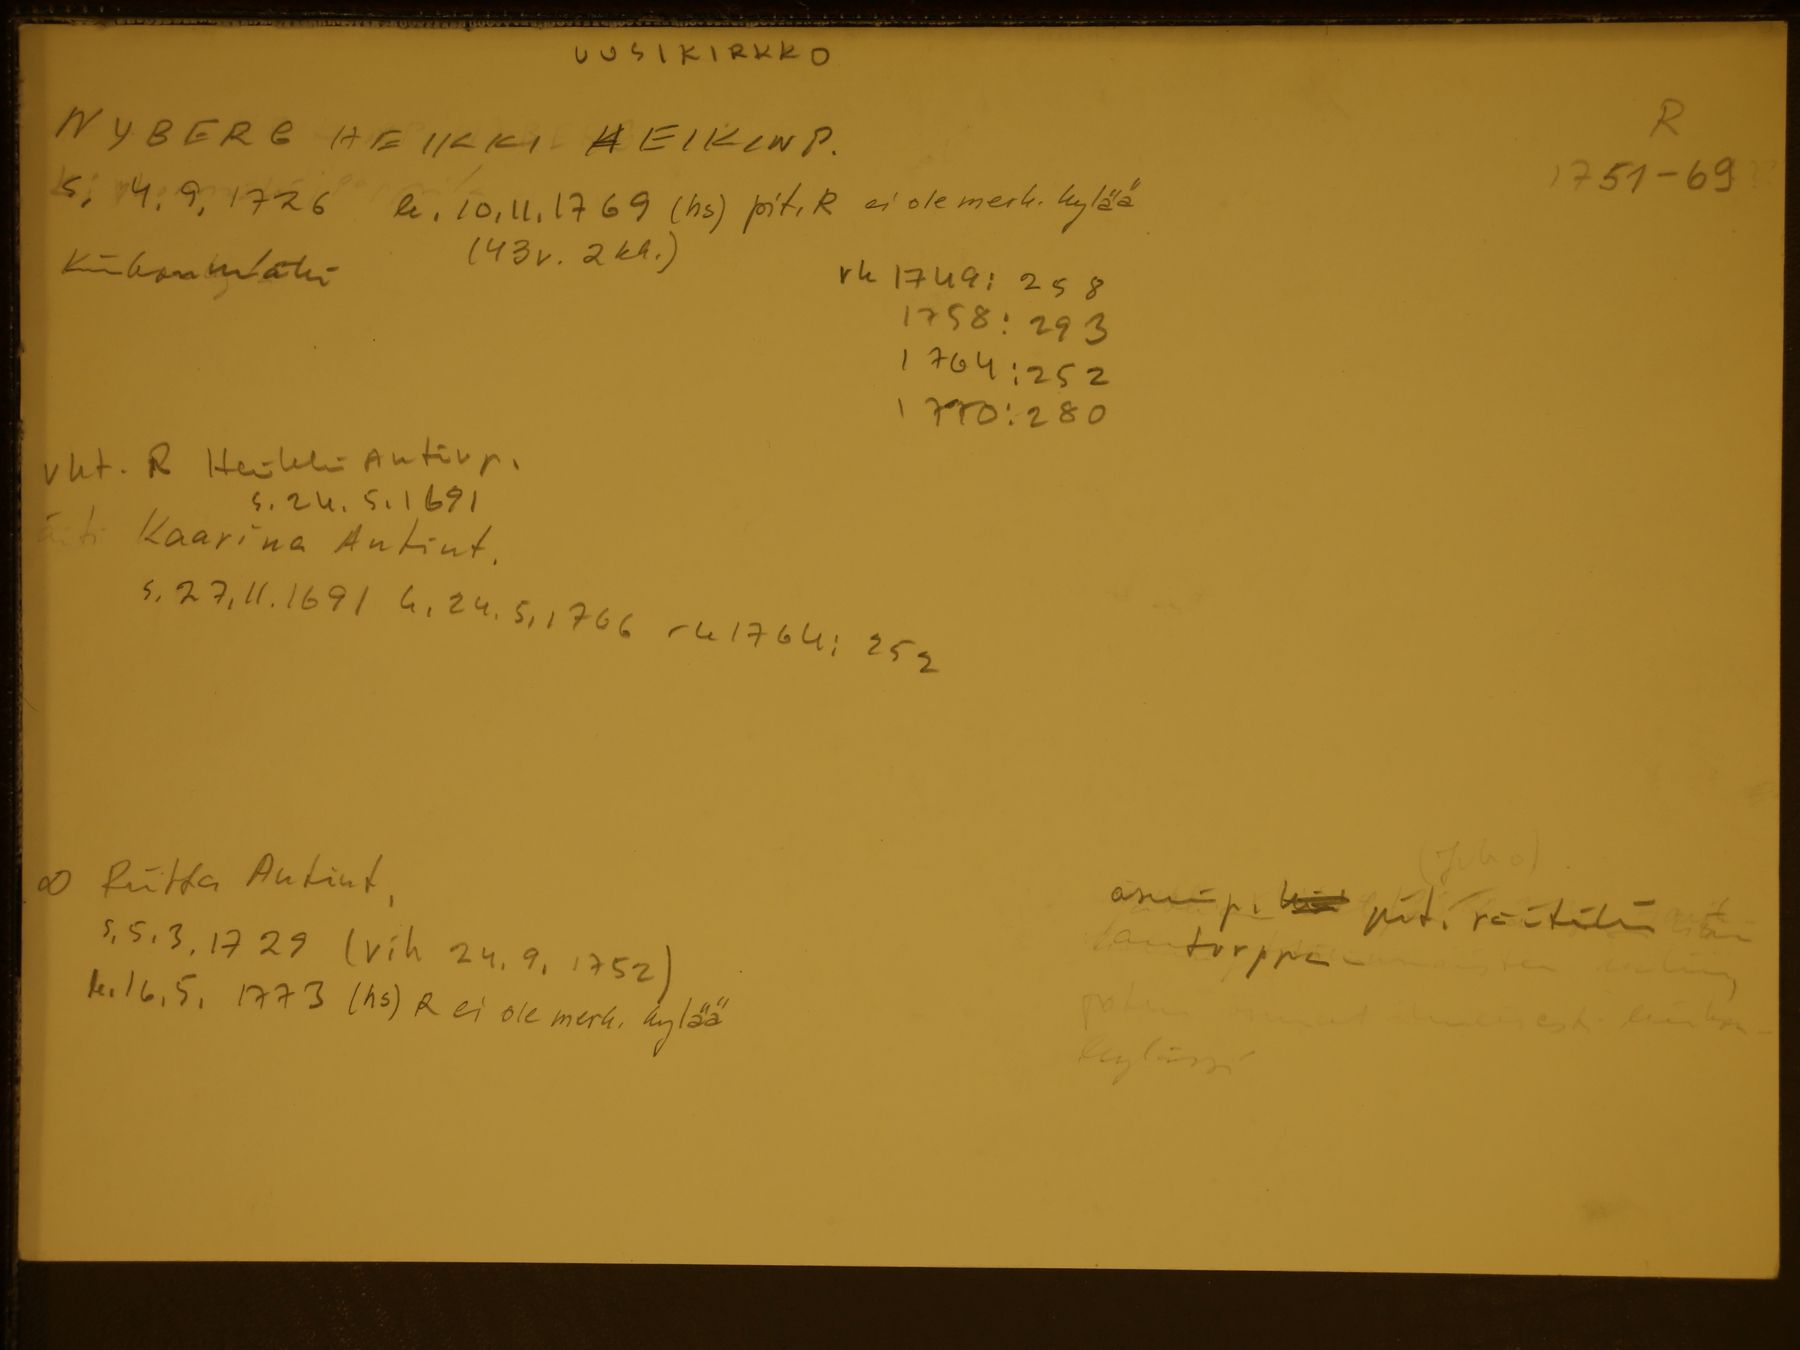 UUSIKIRKKO
NYBERG HEIKKI HEIKINP.
R
1751-69
s. 4.9.1726 k. 10.11.1769 (hs) pit. R ei ole merk. kylää
(43v. 2kk.)
rk 1749: 258
1758: 293
1764: 252
1770: 280
vht. R Heikki Antinp.
s. 24.5.1691
äiti Kaarina Antint.
s. 27.11.1691 k. 24.5.1766 rk 1764: 252
∞ Riitta Antint.
s. 5.3.1729 (vih 24.9.1752)
k. 16.5.1773 (hs) R ei ole merk. kylää
asuinp. pit. räätälin
torppa